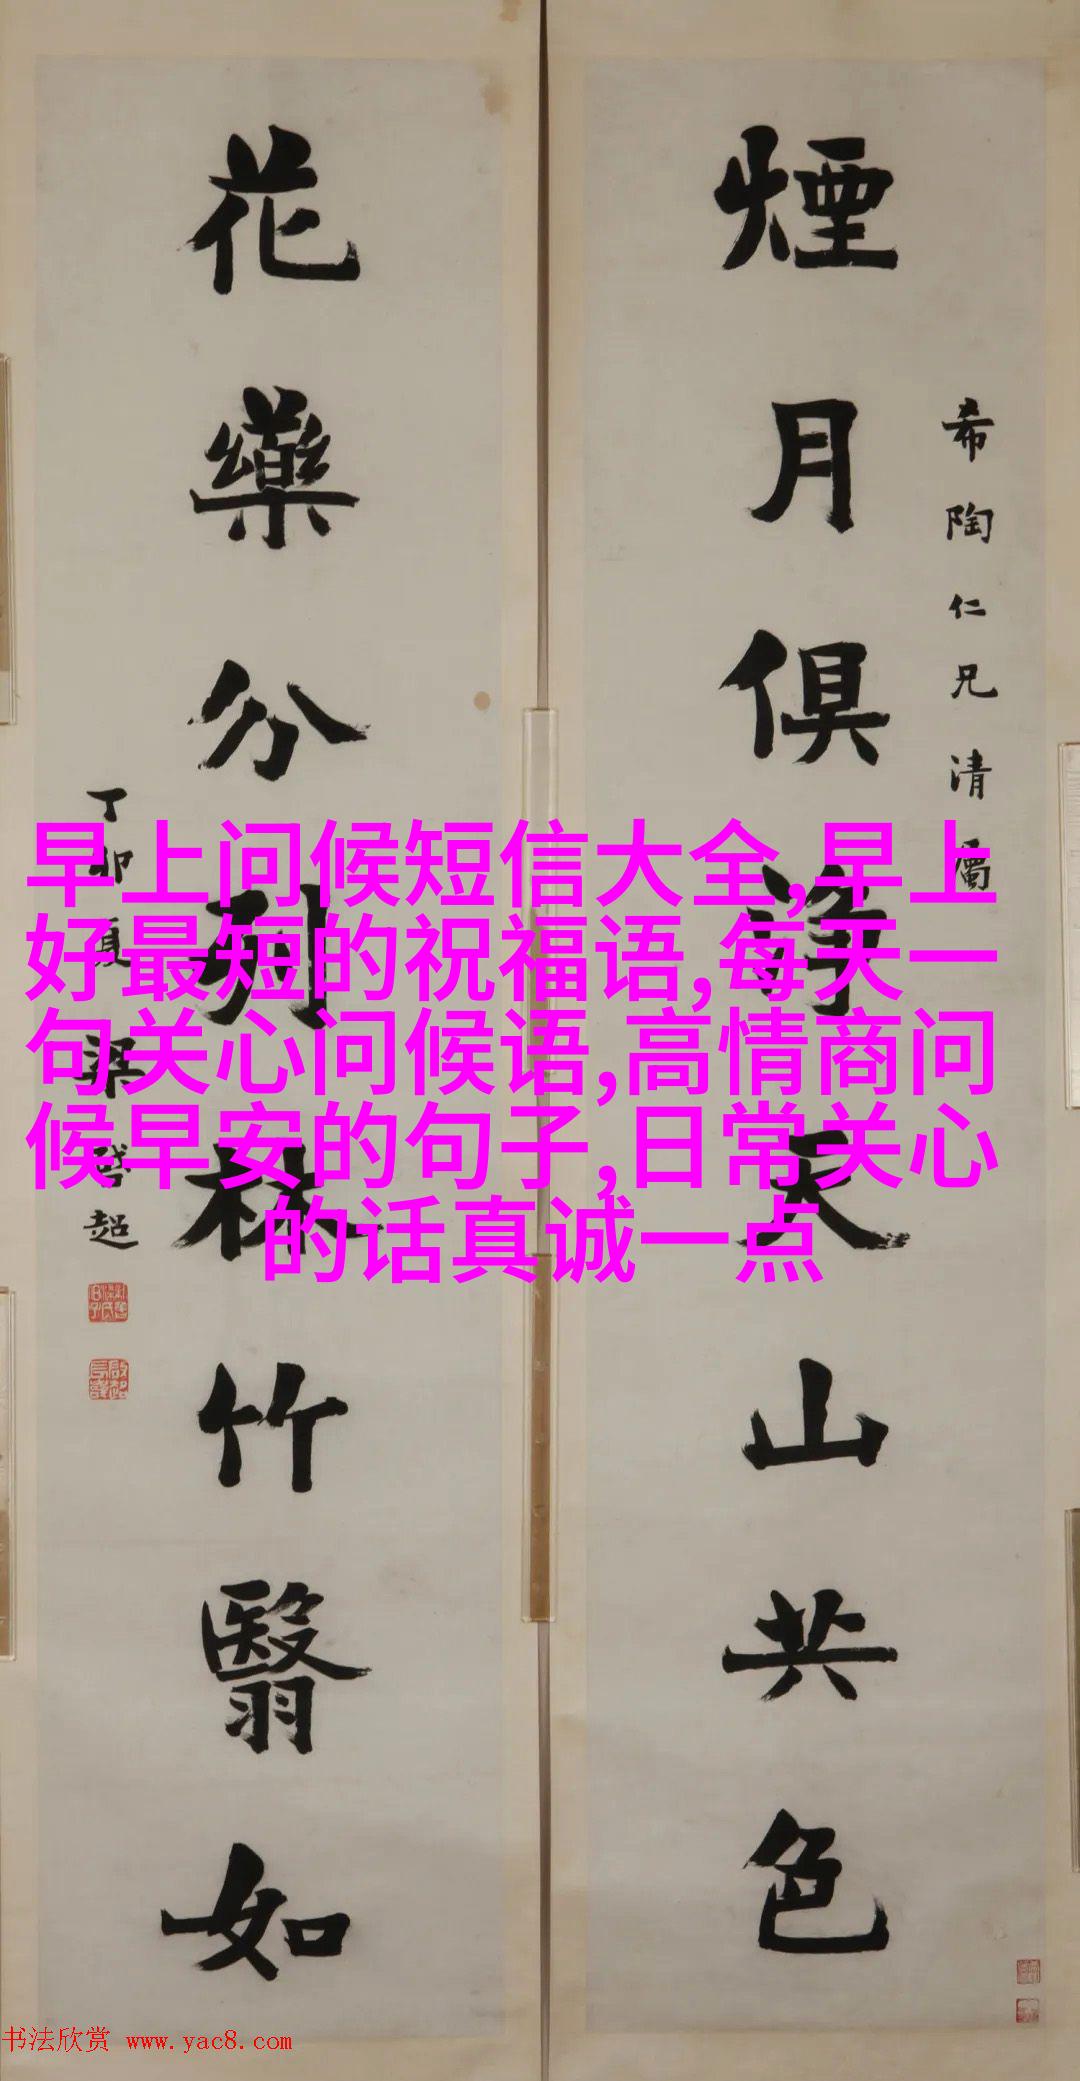 煙月俱淨天山共色
希陶仁兄清屬
花藥分列林竹翳如
丁卯夏梁啓超
早上问候短信大全,早上
好最短的祝福语,每天一
句关心问候语,高情商问
候早安的句子,日常关心
的话真诚一点
书法欣赏 www.yac8.com